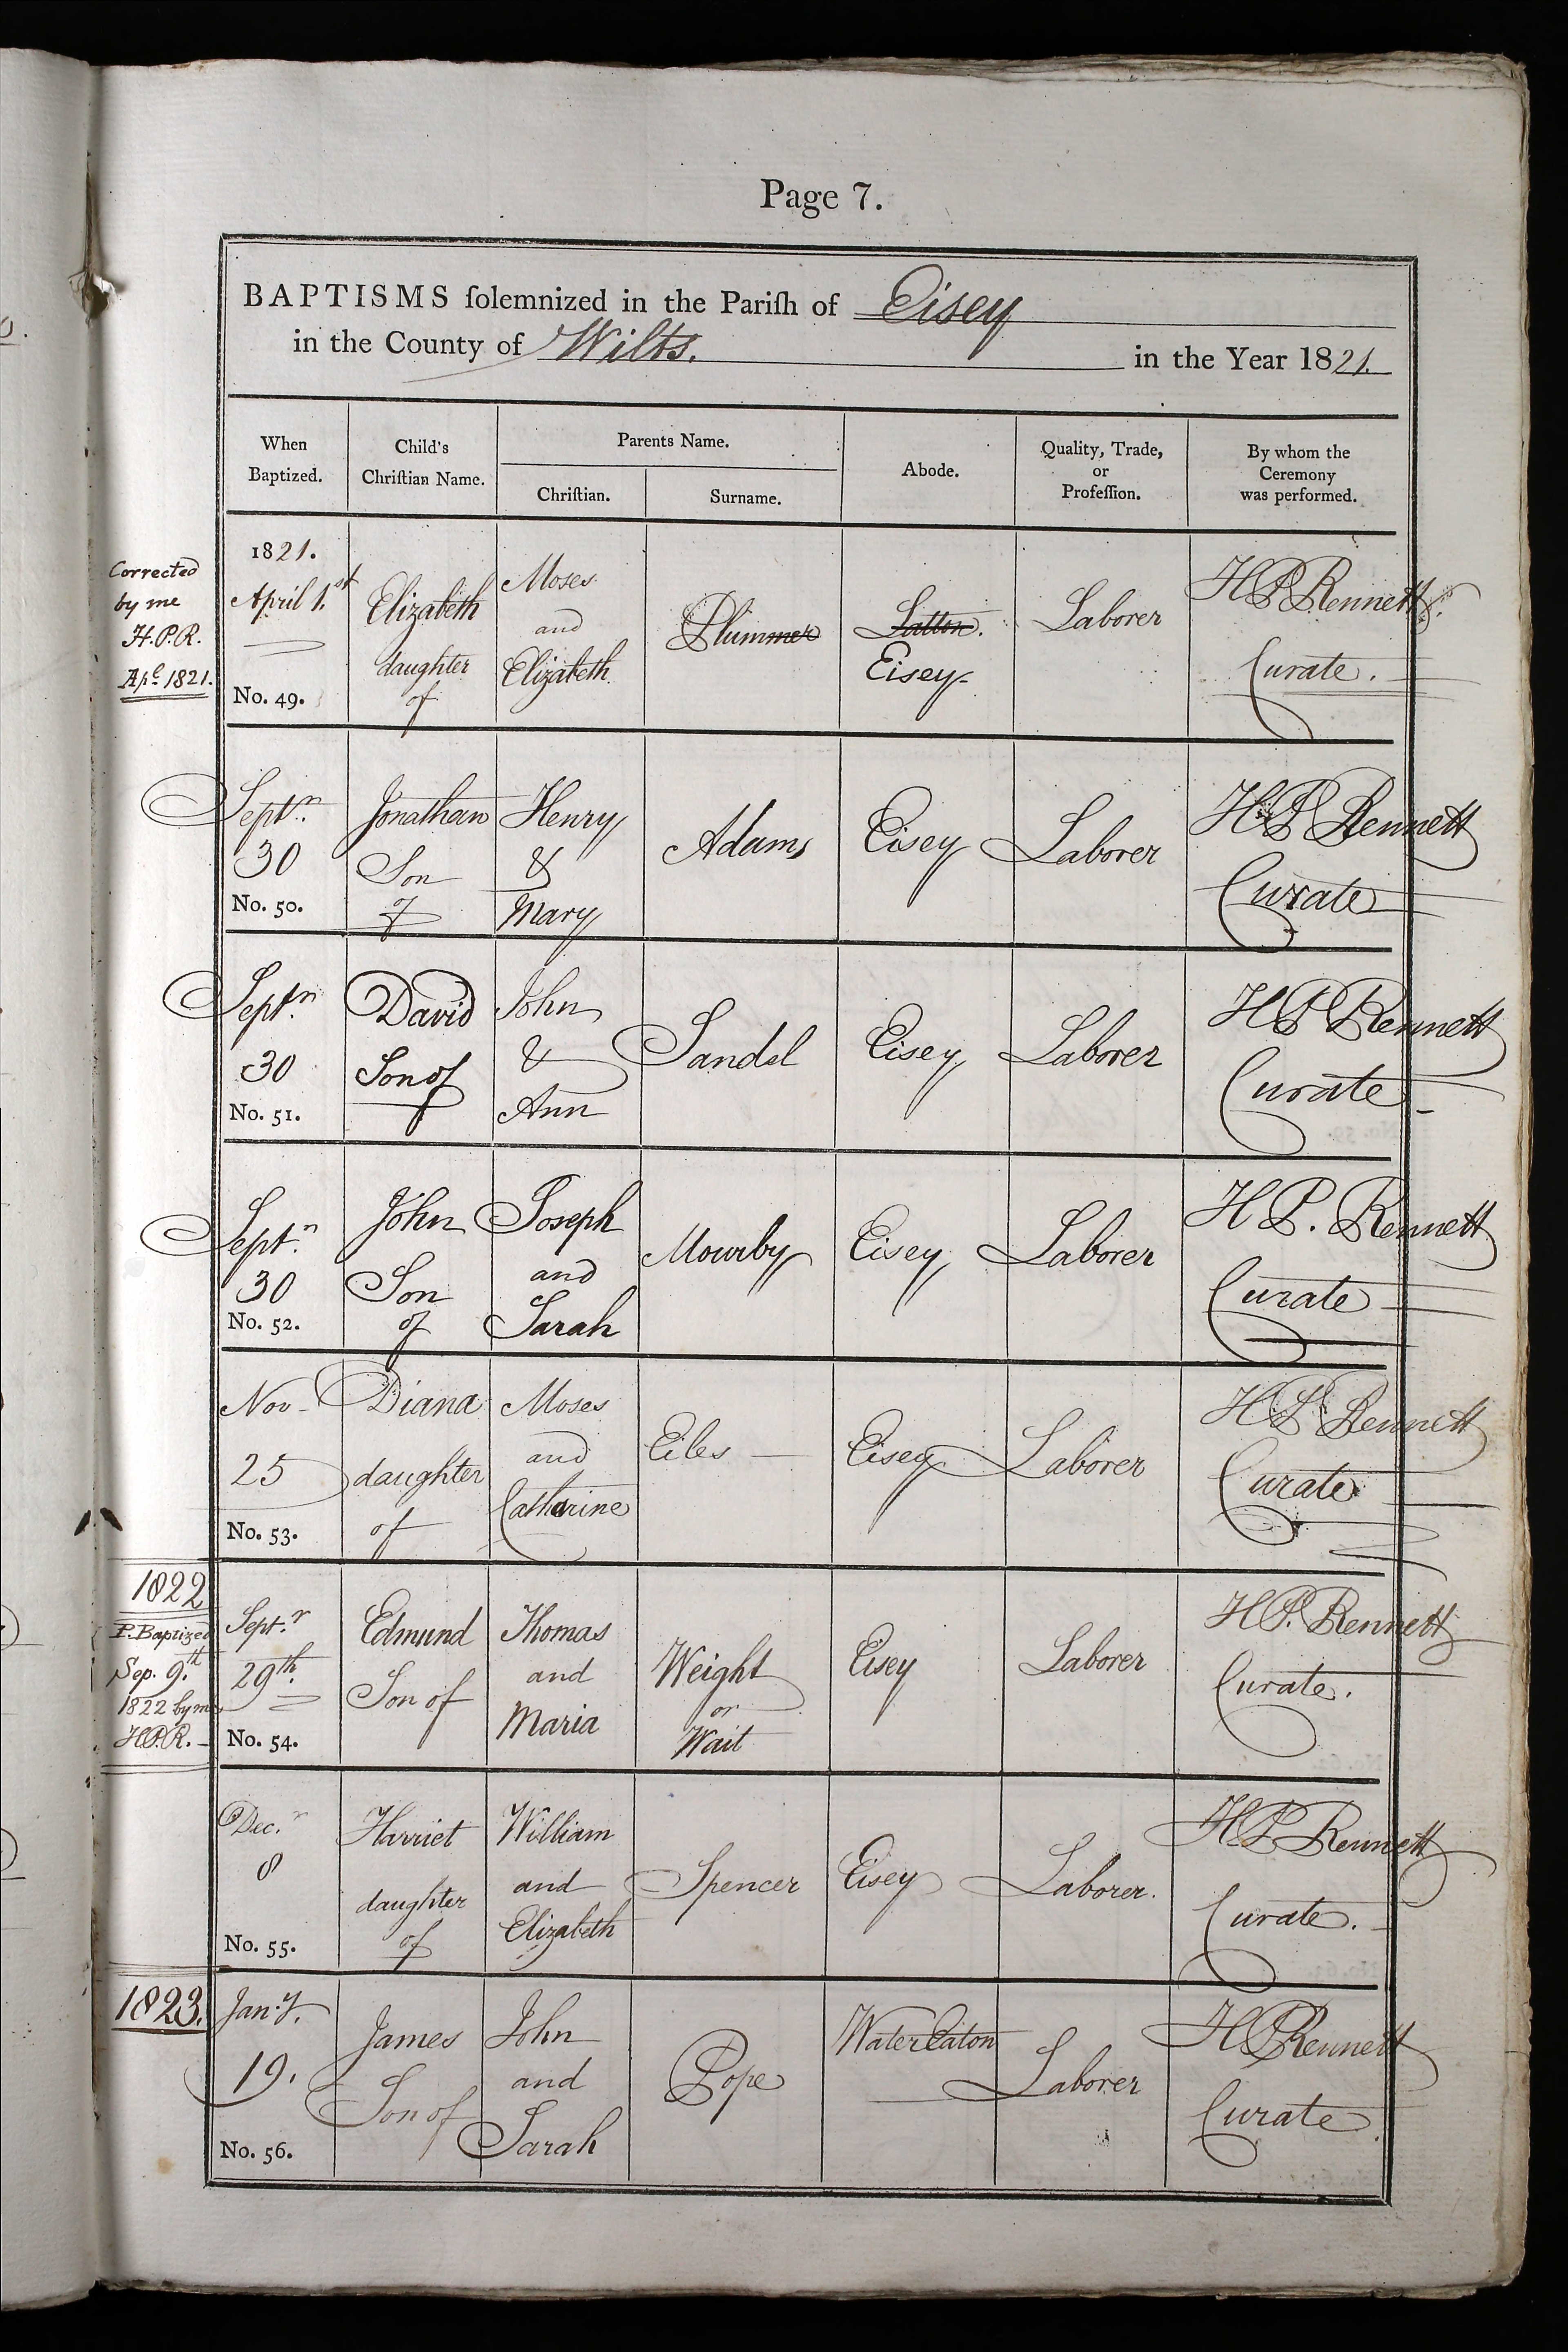 Page 7.
BAPTISMS ſolemnized in the Pariſh of Eisey
in the County of Wilts. in the Year 1821.
When Baptized.
Child's Chriſtian Name.
Parents Name.
Chriſtian.
Surname.
Abode.
Quality, Trade, or Profeſſion.
By whom the Ceremony was performed.
Corrected
by me
H.P.R.
Apl. 1821.
1821.
April 1.st
No. 49.
Elizabeth
daughter
of
Moses
and
Elizabeth
Plummer
Latton.
Eisey
Laborer
H P Rennett
Curate.
Septr.
30
No. 50.
Jonathan
Son
of
Henry
&
Mary
Adams
Eisey
Laborer
H P Rennett
Curate
Septr.
30
No. 51.
David
Son of
John
&
Ann
Sandel
Eisey
Laborer
H P Rennett
Curate
Septr.
30
No. 52.
John
Son
of
Joseph
and
Sarah
Mourby
Eisey
Laborer
H P. Rennett
Curate
Nov
25
No. 53.
Diana
daughter
of
Moses
and
Catharine
Eiles
Eisey
Laborer
H P Rennett
Curate
1822
P. Baptized
Sep. 9.th
1822 by me
H.P.R.
Sept.r
29th.
No. 54.
Edmund
Son of
Thomas
and
Maria
Weight
or
Wait
Eisey
Laborer
H P. Rennett
Curate.
Dec.r
8
No. 55.
Harriet
daughter
of
William
and
Elizabeth
Spencer
Eisey
Laborer.
H P Rennett
Curate.
1823.
Jan.y.
19.
No. 56.
James
Son of
John
and
Sarah
Pope
Water Eaton
Laborer
H P Rennett
Curate